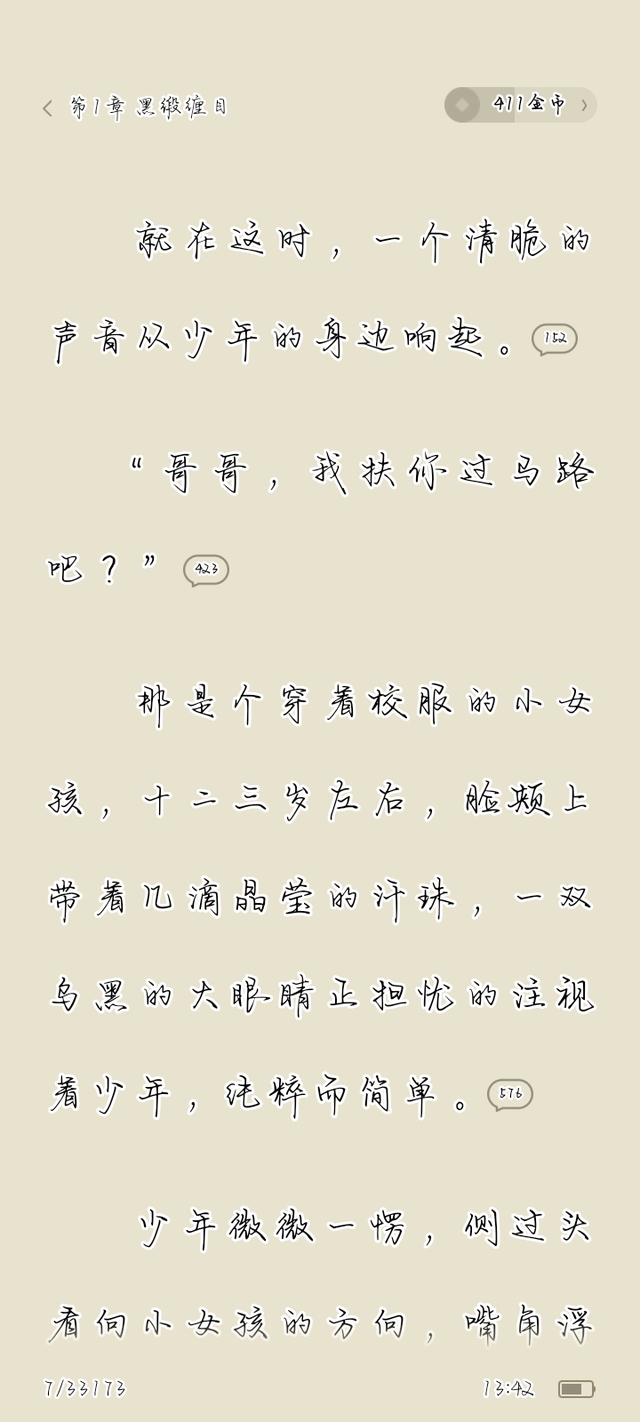 第1章 黑缎缠目
411金币
就在这时，一个清脆的
声音从少年的身边响起。152
“哥哥，我扶你过马路
吧？” 423
那是个穿着校服的小女
孩，十二三岁左右，脸颊上
带着几滴晶莹的汗珠，一双
乌黑的大眼睛正担忧的注视
着少年，纯粹而简单。576
少年微微一愣，侧过头
看向小女孩的方向，嘴角浮
7/33173
13:42